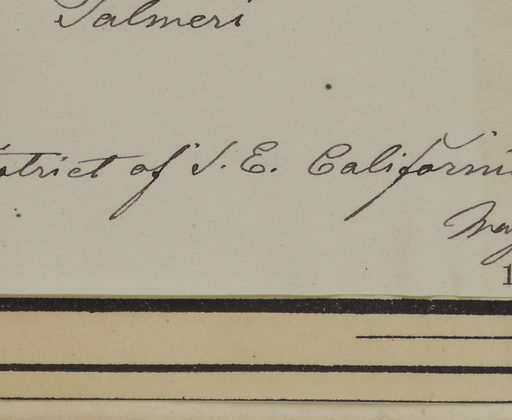 Palmeri
strict of S. E. Californi
May
1